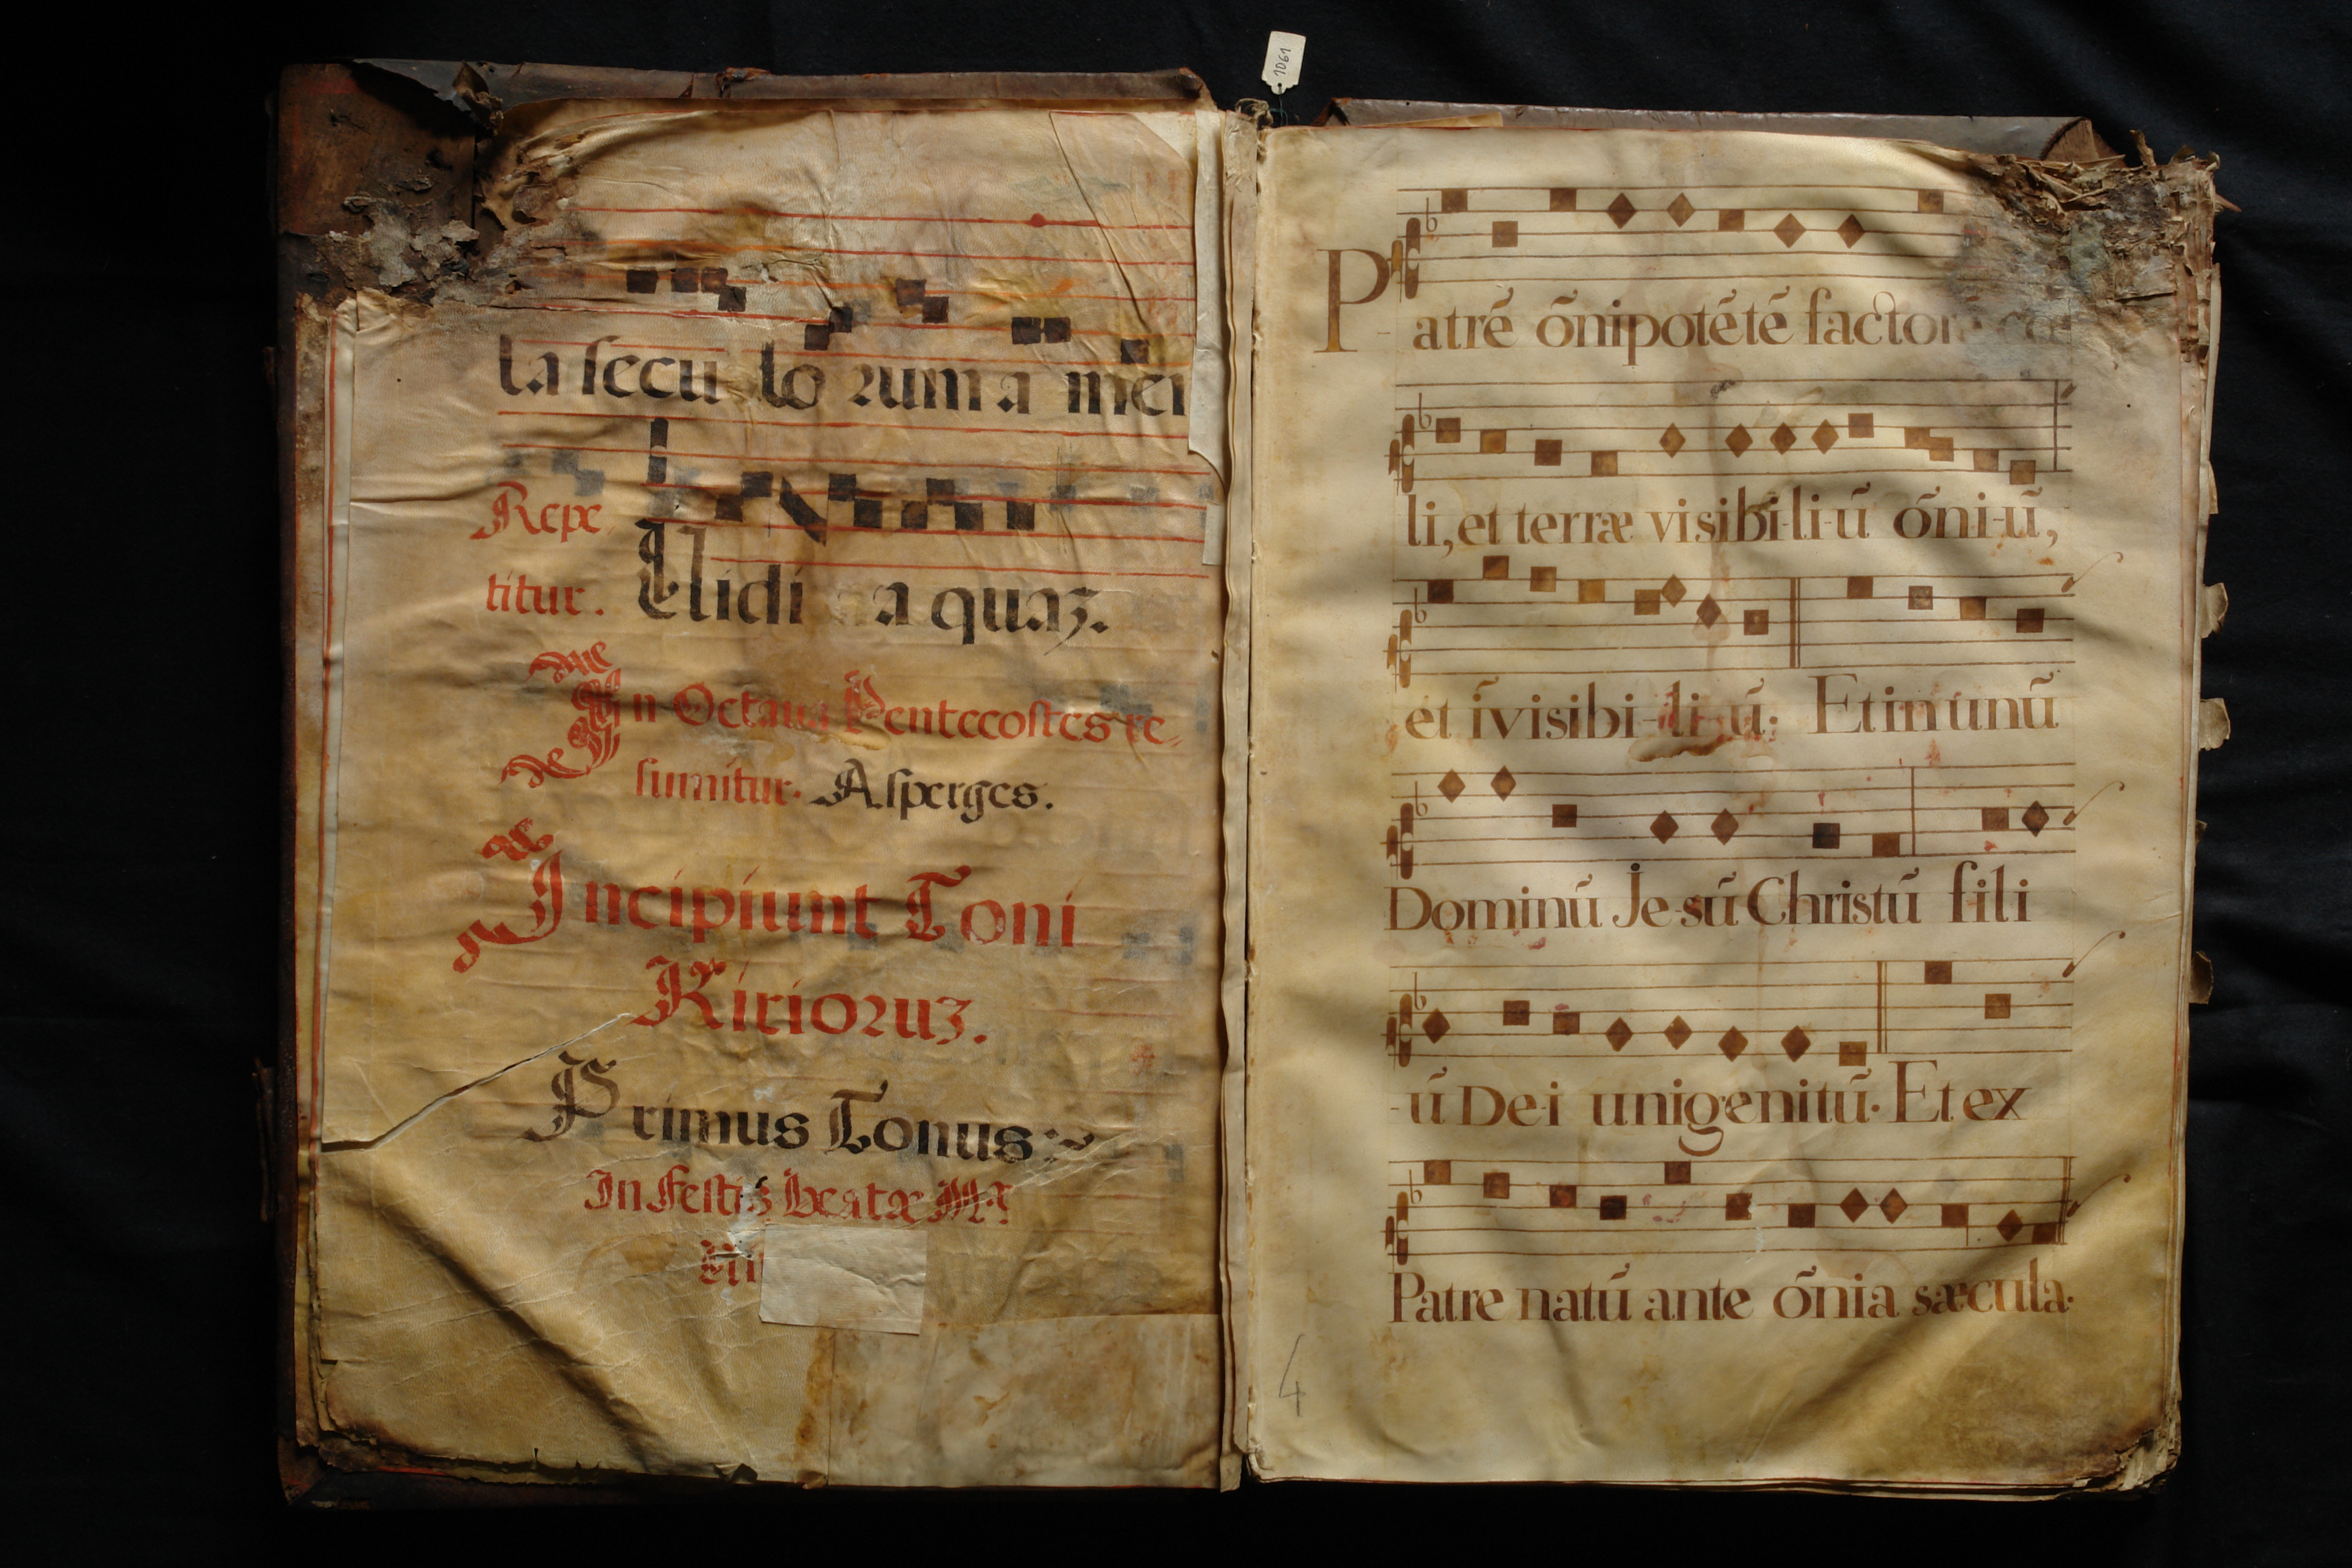 1061
la secu lo rum a mēn
Repe
titur. Uidi a quaz.
In Octaua Pentecostes re,
sumitur. Asperges.
Incipiunt Toni
Kirioruz.
Primus Tonus:~
In Festis beatæ
Patrē ōnipotētē factorē cœ
li, et terræ visibi-li-ū ōni-ū,
et īvisibi-li-ū; Et in unū
Dominū Je-sū Christū fili
-ū De-i unigenitū. Et ex
Patre natū ante ōnia sæcula.
4